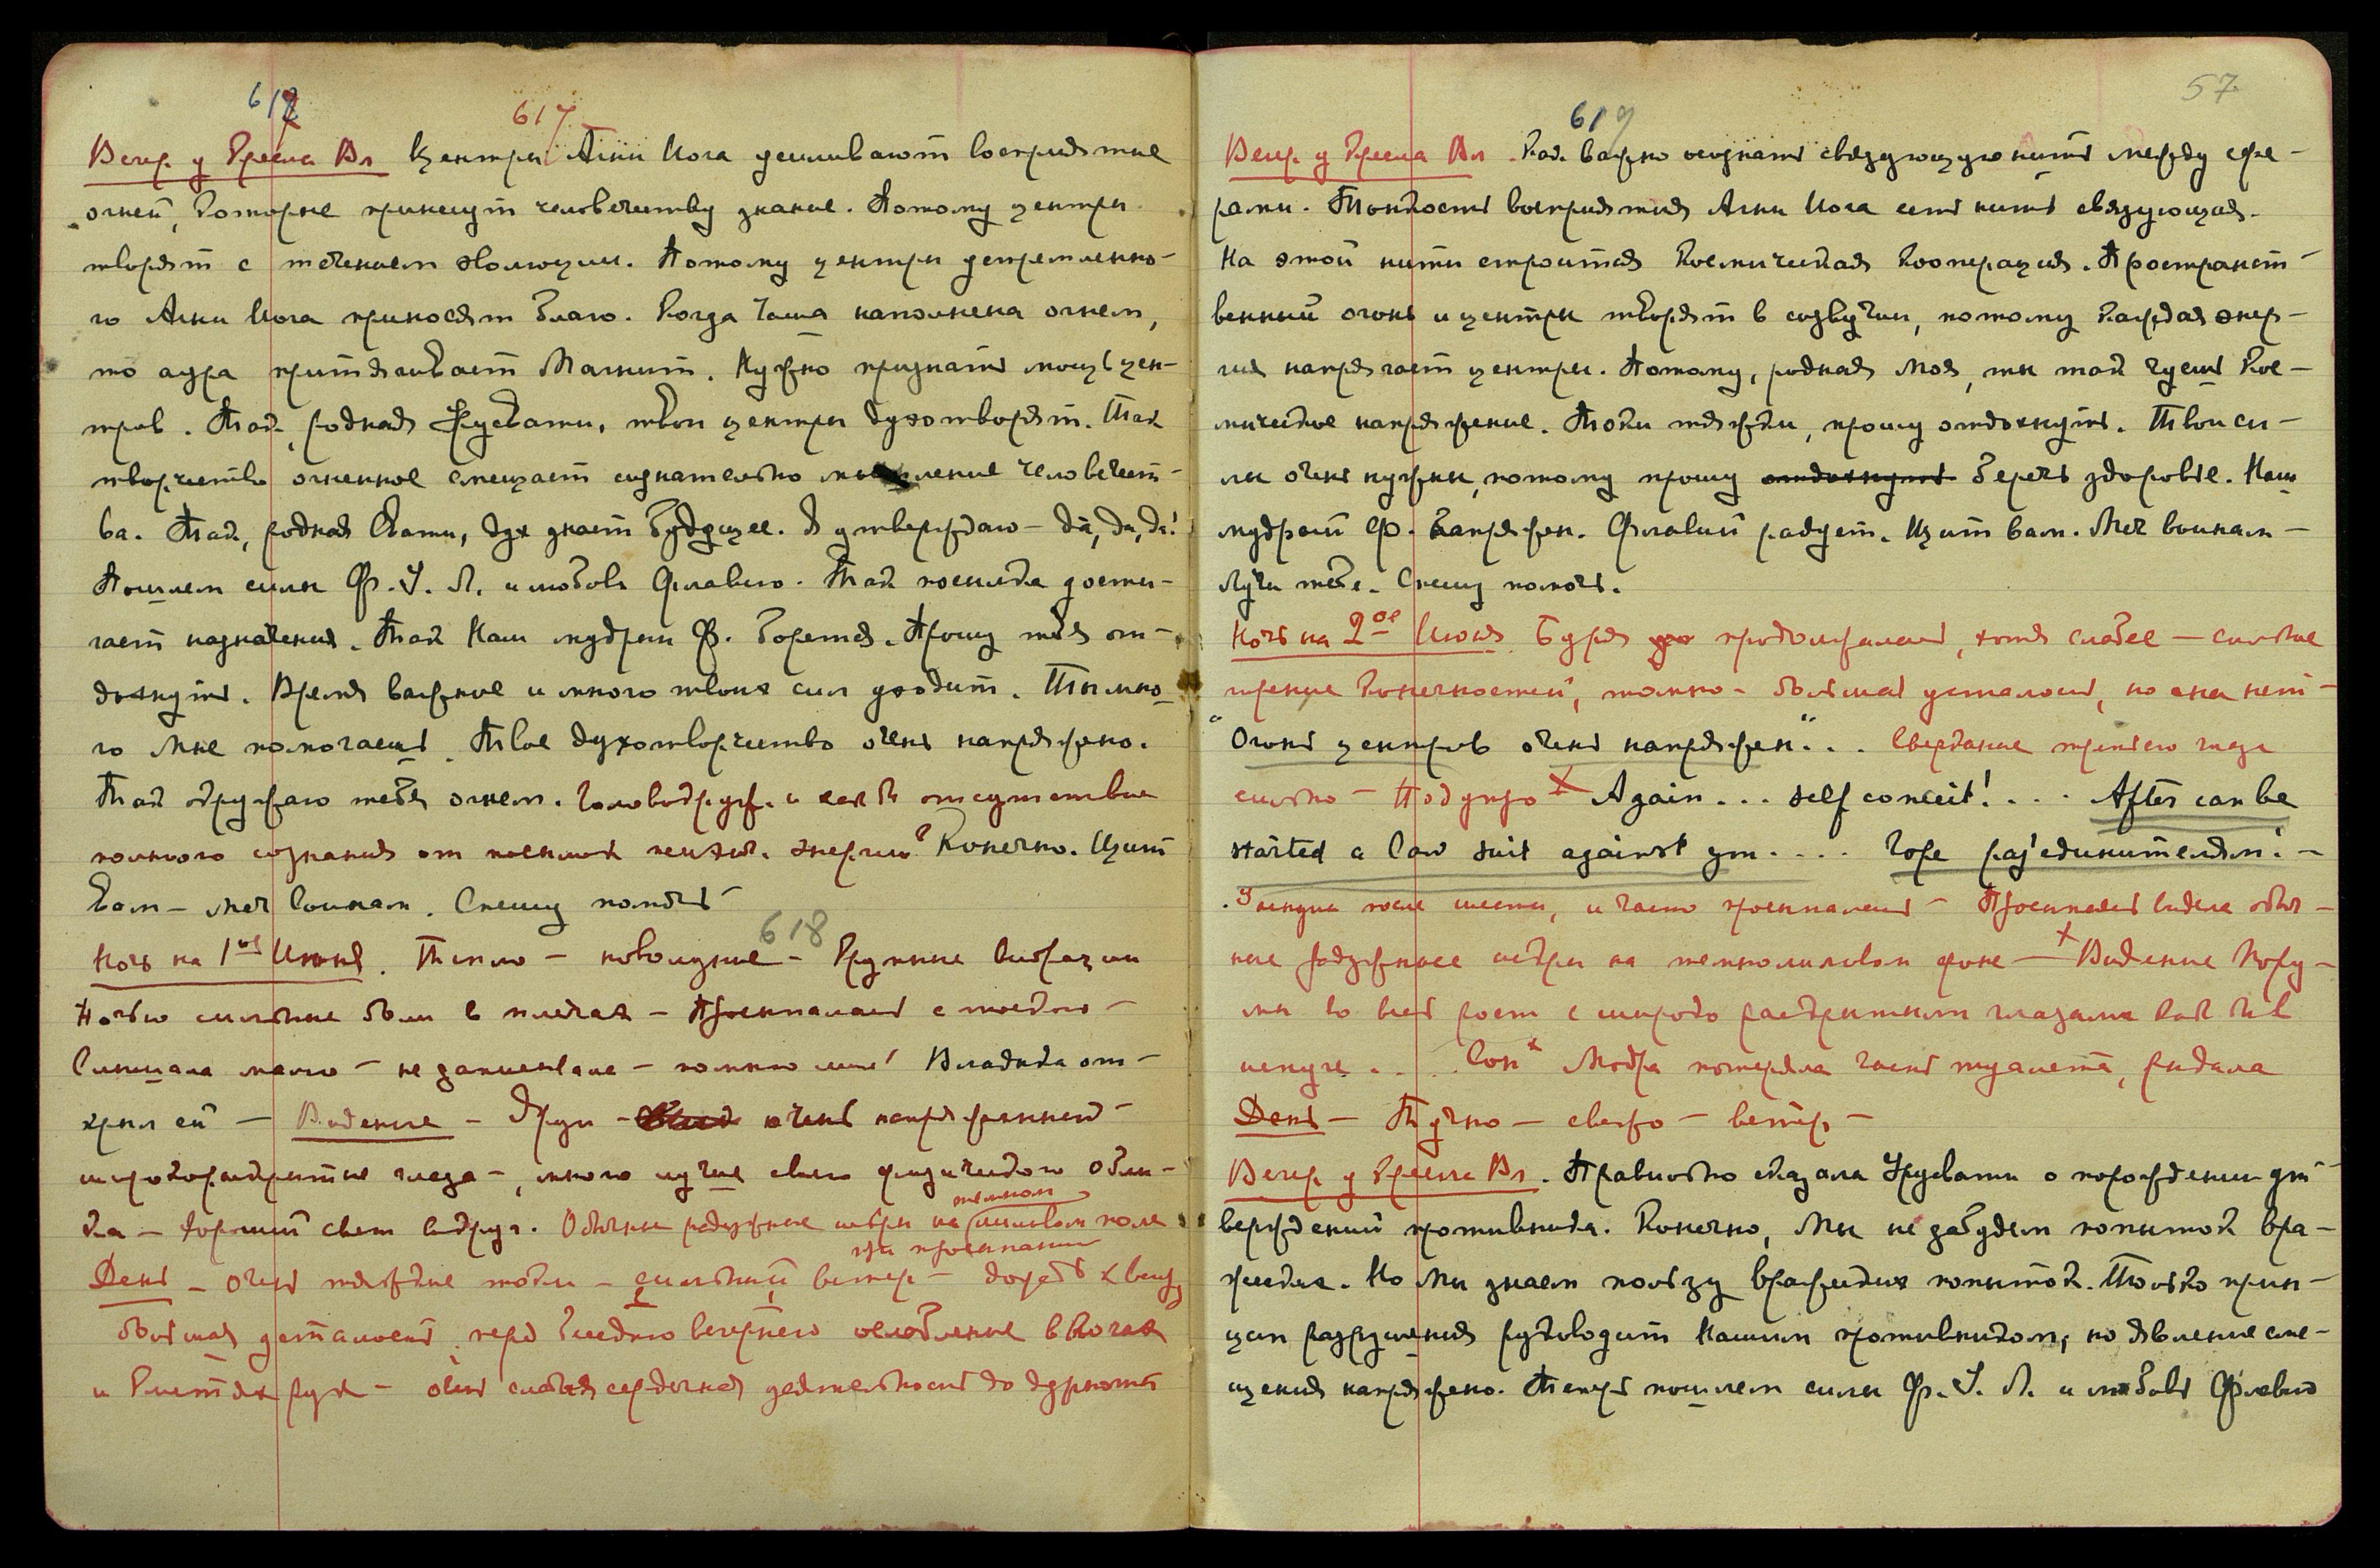 617
617
Вечер у Кресла Вл Центры Агни Йога усиливают восприятие
огней, которые принесут человечеству знание. Потому центры
творят с течением эволюции. Потому центры устремленно-
го Агни Йога приносят благо. Когда Чаша наполнена огнем,
то аура притягивает Магнит. Нужно признать мощь цен-
тров. Так, родная Урусвати, твои центры духотворят. Так
творчество огненное смещает сознательно мышление человечест-
ва. Так, родная Свати, дух знает будущее. Я утверждаю — да, да, да!
Пошлем силы Ф. У. Л. и любовь Флавию. Так посылка дости-
гает назначения. Так Наш мудрый Ф. борется. Прошу тебя от-
дохнуть. Время важное и много твоих сил уходит. Ты мно-
го Мне помогаешь. Твое духотворчество очень напряжено.
Так окружаю тебя огнем. Головокруж. и как бы отсутствие
полного сознания от посылок психич. энергии? Конечно. Щит
вам — меч воинам. Спешу помочь —
618
Ночь на 1ое Июня. Тепло — новолуние — Крупные вибрации
Ночью сильные боли в плечах — Просыпалась с тоскою —
Слышала много — не записывала — помню лишь Владыка от-
крыл ей — Видение — Друг — очень напряженный —
широкораскрытые глаза —, много лучше своего физического обли-
ка — хороший свет вокруг. Обычные радужные искры на темном лиловом поле
при просыпании
День — очень тяжкие токи — сильный ветер —
большая усталость, перед вечером ослабление в ногах
и кистях рук — очень слабая сердечная деятельность до дурноты
57
619
Вечер у Кресла Вл. Как важно осознать связующую нить между сфе-
рами. Тонкость восприятия Агни Йога есть нить связующая.
На этой нити строится Космическая Кооперация. Пространст-
венный огонь и центры творят в созвучии, потому каждая энер-
гия напрягает центры. Потому, родная моя, ты так чуешь кос-
мическое напряжение. Токи тяжки, прошу отдохнуть. Твои си-
лы очень нужны, потому прошу отдохнуть беречь здоровье. Наш
мудрый Ф. напряжен. Флавий радует. Щит вам. Меч воинам —
Лучи тебе. Спешу помочь.
Ночь на 2ое Июня. Буря продолжалась, хотя слабее — сильные
горение конечностей, томно — большая усталость, но сна нет —
"Огонь центров очень напряжен"... Сверкание третьего глаза
сильно — Под утро × Again... self conceit!.... After can be
started a law suit against you.... Горе разъединителям! —
Уснула после шести, и часто просыпалась — Просыпаясь видела обыч-
ные радужные искры на темнолиловом фоне — × Видение Нору-
мы во весь рост с широко раскрытыми глазами как бы в
испуге.... Сон × Модра потеряла часть туалета, рыдала
День — Тучно — свежо — ветер —
Вечер у Кресла Вл. Правильно сказала Урусвати о порождении ут-
верждений противника. Конечно, Мы не забудем попыток вра-
жеских. Но Мы знаем пользу вражеских попыток. Только прин-
цип разрушения руководит Нашим противником, но явление сме-
щения напряжено. Теперь пошлем силы Ф. У. Л. и любовь Флавию